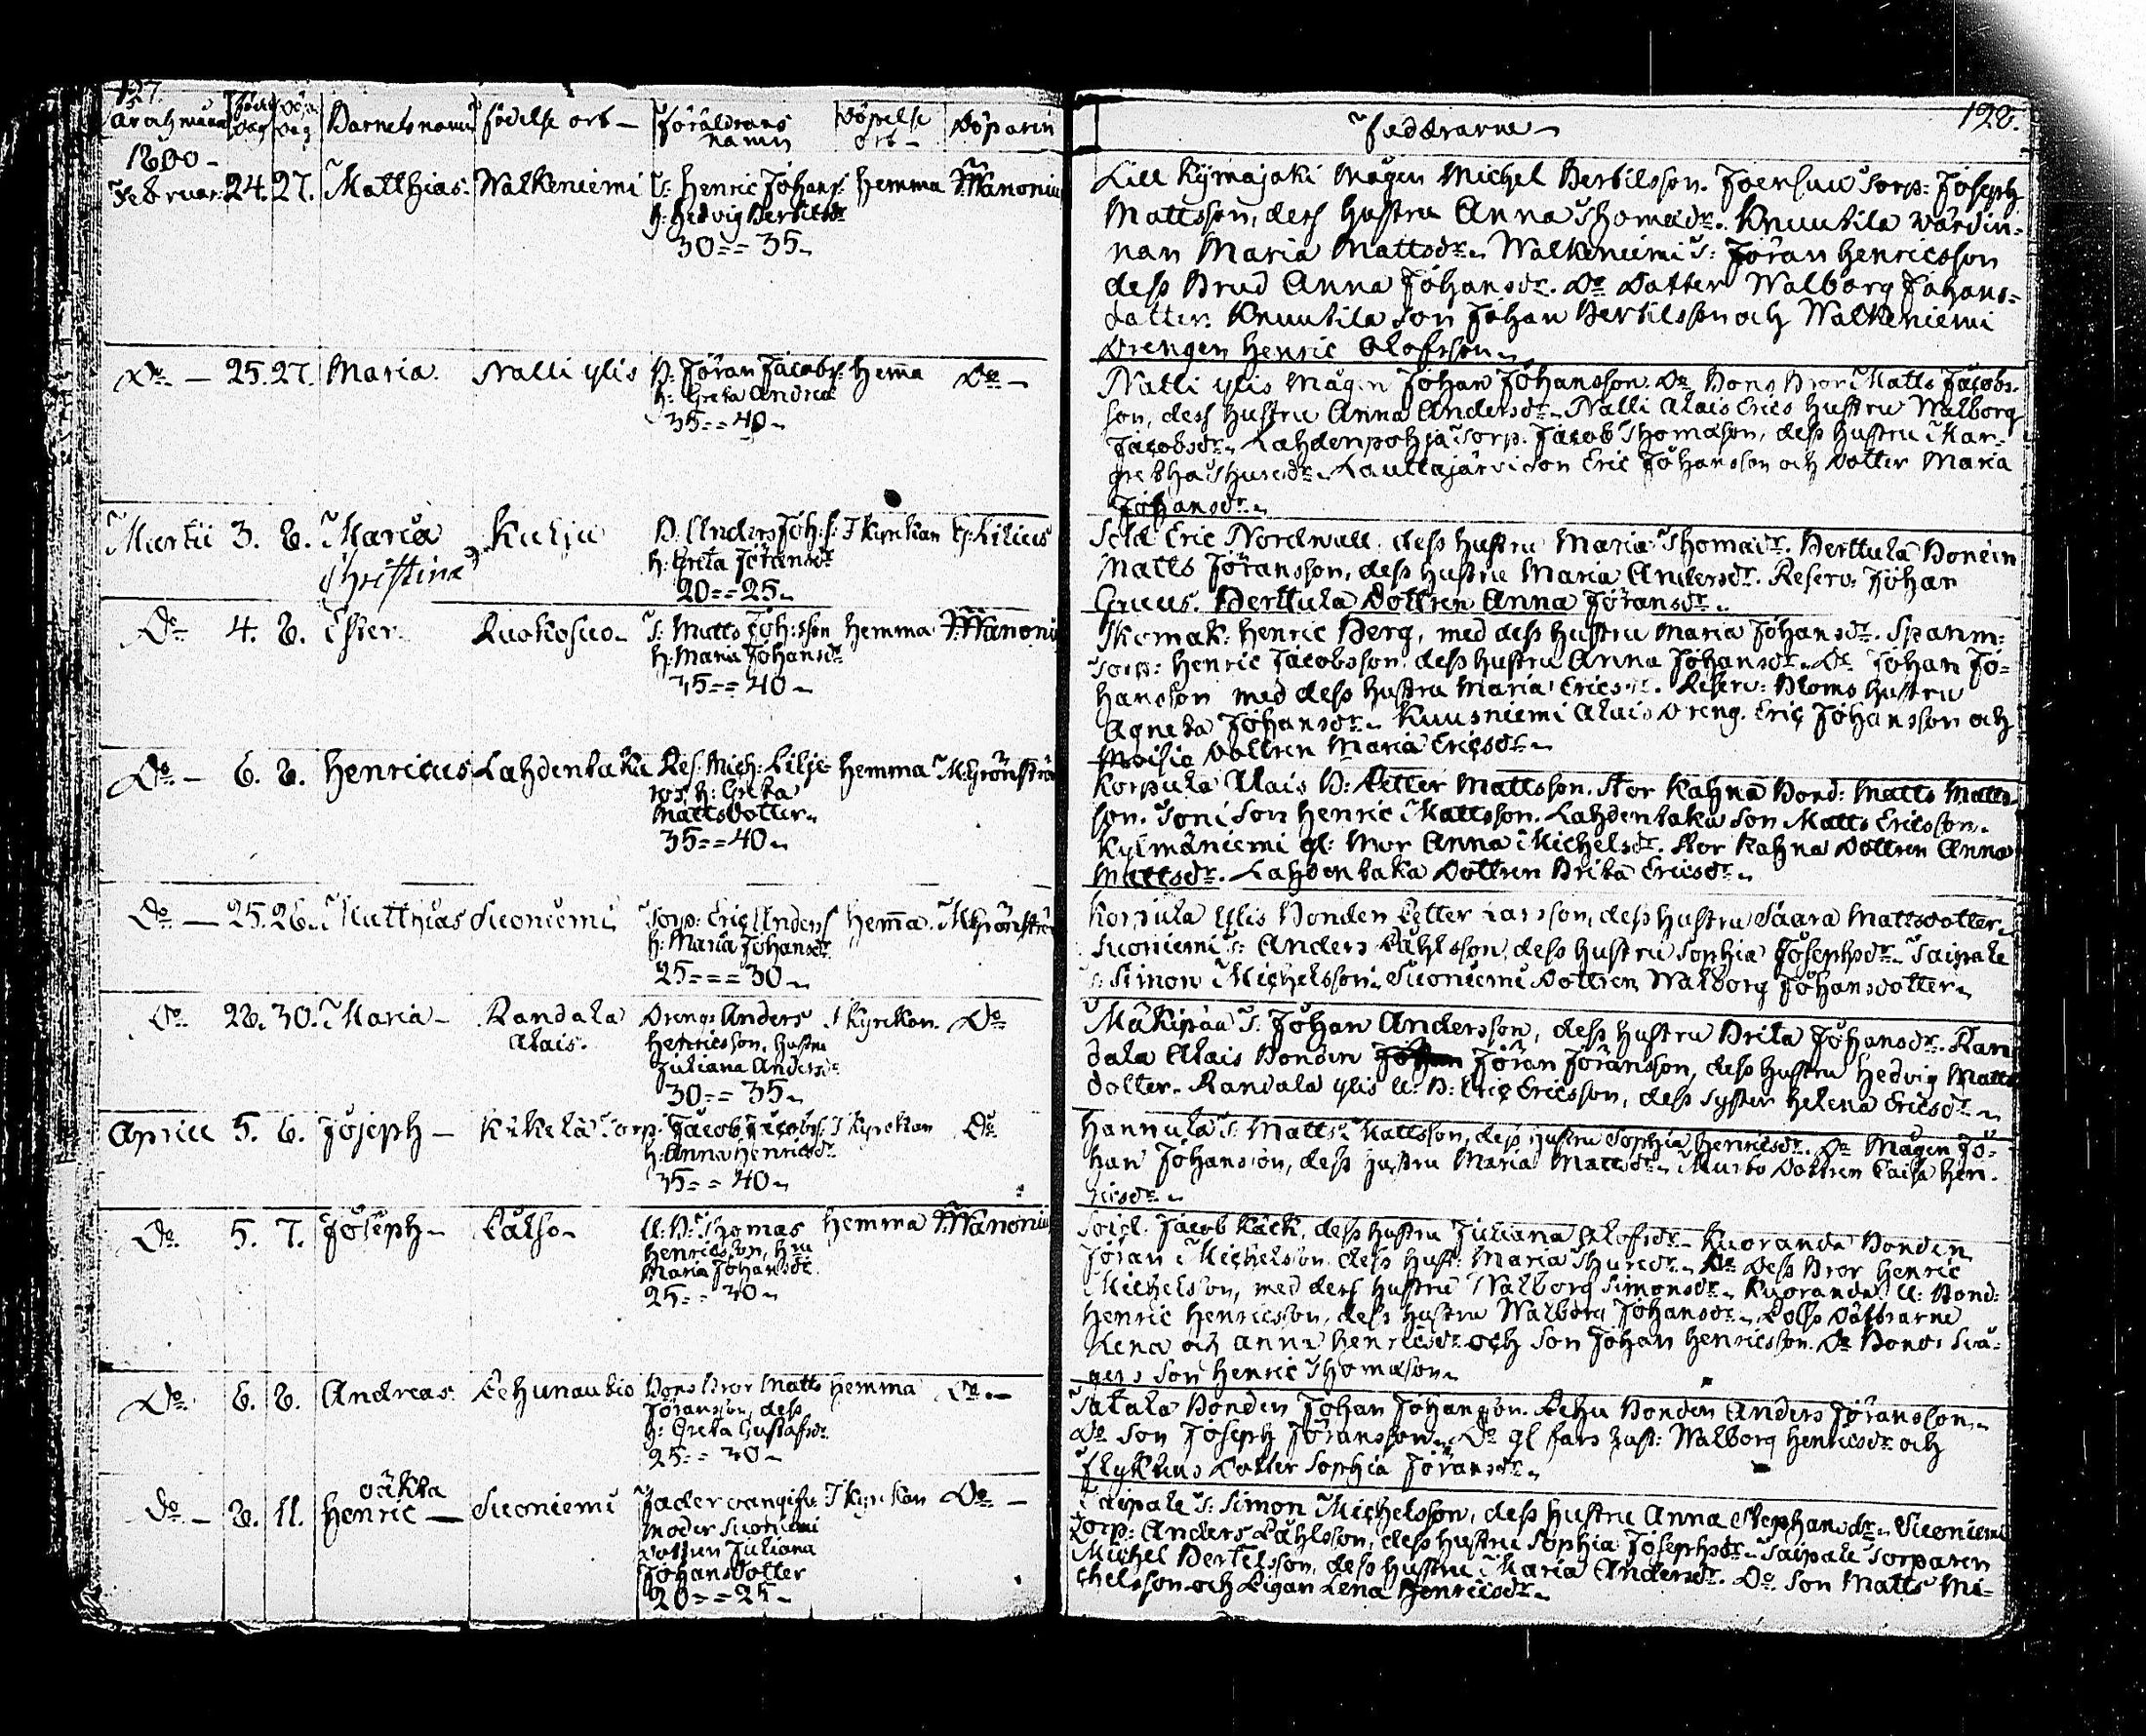 127.
År och månad Födelse dag Döpelse dag Barnets namn födelse ort — föräldrarnas namn Döpelse ort — Döparen
1800 —
Februar: 24. 27. Matthias. Walkeniemi T: Henric Johans: hemma
h: Hedvig Bertilsdr
30 == 35
Do — 25. 27. Maria. Nalli ylis B: Jöran Jacobs: hema Do —
h: Greta Andrsd
35 == 40
Martii 3. 8. Maria Kulju B. Anders Joh:s: I Kyrckan G: Lilius
Christina h: Greta Jöransdr
20 == 25
Do 4. 8. Ester. Ruokosuo — T: Matts Joh:sson hemma
h: Maria Johansdr
35 == 40
Do — 6. 8. Henricus Lahdentaka Res: Mich: Lilje- hemma M: Grönströ
ros, h: Greta
Mattsdotter
35 == 40
Do — 25. 26. Matthias Suoniemi Torp: Eric Anders hema. M: Grönströ
h: Maria Johansdr
25 === 30
Do 28. 30. Maria — Randala Dreng: Anders I Kyrckan. Do
alais. Henricsson, hustru
Juliana Andersdr
30 == 35
Aprill 5. 6. Joseph — Kikelä Torp: Jacob Jacobs: I Kyrckan Do
h: Anna Henricsdr
35 == 40
Do 5. 7. Joseph — U. B: Thomas hemma
Henricsson, hru
Maria Johansdr
25 == 30
Do 6. 8. Andreas. Lehunautio Bond: Bror Matts hemma Do —
Jöransson, dess
h: Greta Gustafsdr
25 == 30
oäkta
Do — 8. 11. Henric — Suoniemi Fader oangifn: I Kyrckan Do —
Moder Suoniemi
dottren Juliana
Johansdotter
20 == 25
128.
Faddrarne —
Lill Kymajoki Mågen Michel Bertilsson. Torp: Joseph
Mattsson, dess hustru Anna Thomædr. Knuutila Värdin-
nan Maria Mattsdr. Walkeniemi T: Jöran Henricsson
dess Brud Anna Johansdr. Do Dotter Walborg Johans-
dotter. Knuutila Son Johan Bertilsson och Walkeniemi
Drengen Henric Olofsson.
Nalli ylis Mågen Johan Johansson. Do Bonds Bror Matts Jacobs-
son, dess hustru Anna Andersdr. Nalli Alais Erics hustru Walborg
Jacobsdr. Lahdenpohja Torp. Jacob Thomæson, dess hustru Mar-
gretha Thuresdr. Lauttajärvi Son Eric Johansson och Dotter Maria
Johansdr.
Sold. Eric Nordwall. dess hustru Maria Thomædr. Perttula Bonden
Matts Jöransson, dess hustru Maria Andersdr. Reserv: Johan
Gruus. Perttula Dottren Anna Jöransdr.
Skomak: Henric Berg, med dess hustru Maria Johansdr.
Torp: Henric Jacobsson. dess hustru Anna Johansdr. Do Johan Jo-
hansson med dess hustru Maria Ericsdr. Reserv: Bloms hustru
Agneta Johansdr. Kuusniemi Alais Dreng. Eric Johansson och
Moisio Dottren Maria Ericsdr.
Korpula Alais B: Petter Mattsson. Stor Kahna Bond: Matts Matts-
son. Toni Son Henric Mattsson. Lahdentaka Son Matts Ericsson.
Kylmäniemi gl: Mor Anna Michelsdr. Stor Kahna Dottren Anna
Mattsdr. Lahdentaka Dottren Brita Ericsdr.
Korpula Ylis Bonden Petter Larsson, dess hustru Saara Mattsdotter.
Suoniemi T: Anders Påhlsson, dess hustru Sophia Josephsdr. Taipale
T: Simon Michelsson. Suoniemi Dottren Walborg Johansdotter.
Mäkipää T: Johan Andersson, dess hustru Brita Johansdr. Ran-
dala Alais Bonden Jöran Jöransson, dess hustru Hedvig Matts
dotter. Randala ylis U: B: Eric Ericsson, dess syster Helena Ericsdr.
Hannula T: Matts Mattsson, dess hustru Sophia Henricsdr. Do Mågen Jo-
han Johansson, dess hustru Maria Mattsdr. Dottren Caisa Hen-
ricsdr.
Sold. Jacob Käck, dess hustru Juliana Olofsdr. Kuoranda Bonden
Jöran Michelsson. dess hust: Maria Thuresdr. Do Dess Bror Henric
Michelsson, med dess hustru Walborg Simonsdr. Kuoranda U: Bond:
Henric Henricsson, dess hustru Walborg Johansdr. Döttrarne
Lena och Anna Henricsdr. och Son Johan Henricsson. Do Bonds Svå-
gers Son Henric Thomæson.
Satala Bonden Johan Johansson. Lehu Bonden Anders Jöransson.
Do Son Joseph Jöransson. Do gl fars hust: Walborg Henricsdr och
Flyktens Dotter Sophia Jöransdr.
Taipale T: Simon Michelsson, dess hustru Anna Stephansdr. Suoniemi
Torp: Anders Påhlsson, dess hustru Sophia Josephsdr. Taipale Torparen
Michel Bertelsson, dess hustru Maria Andersdr. Do Son Matts Mi-
chelsson och Pigan Lena Henricsdr.